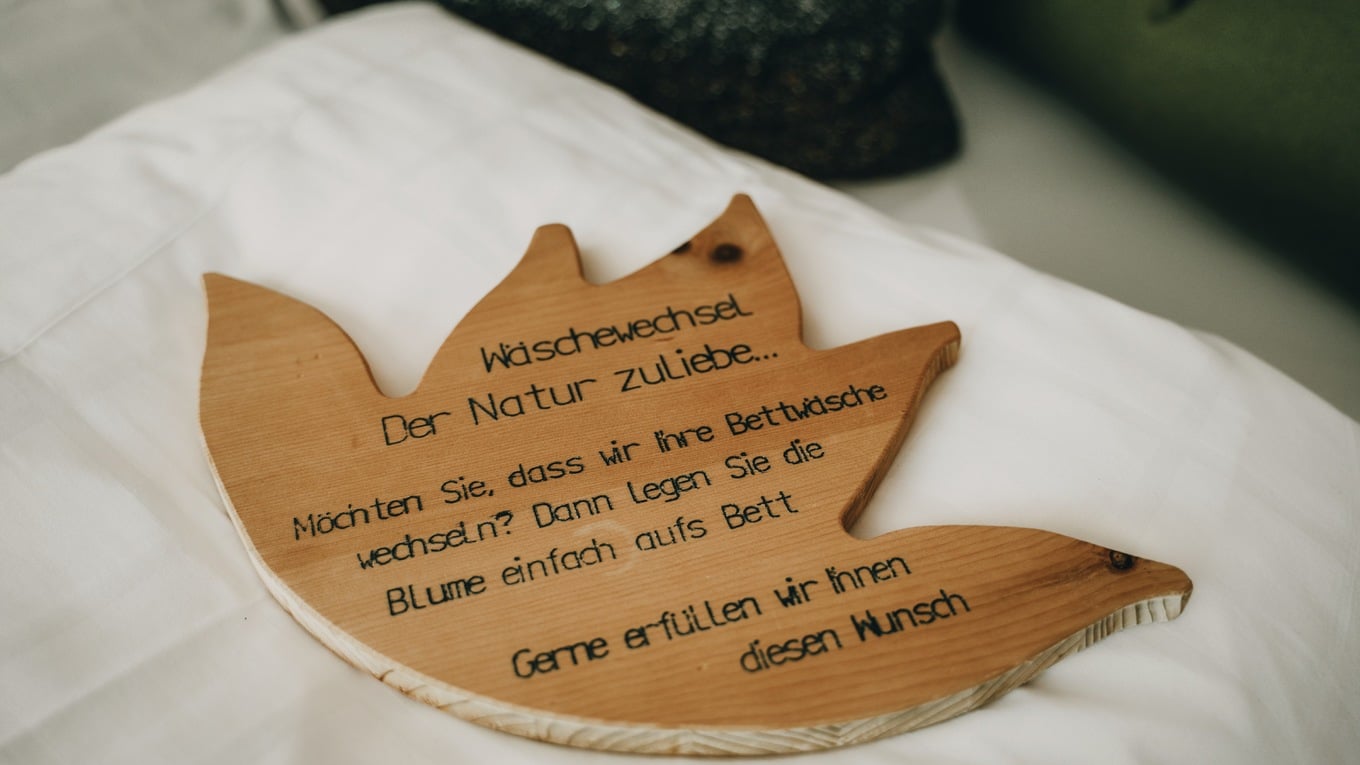 Wäschewechsel
Der Natur zuliebe...
Möchten Sie, dass wir Ihre Bettwäsche
wechseln? Dann legen Sie die
Blume einfach aufs Bett
Gerne erfüllen wir Ihnen
diesen Wunsch